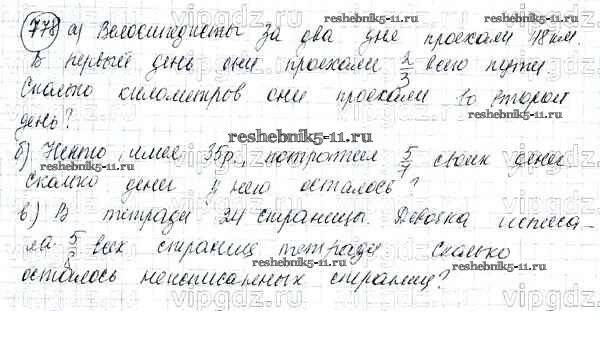 778 а) Велосипедисты за два дня проехали 48 км.
В первый день они проехали 2/3 всего пути.
Сколько километров они проехали во второй
день?
б) Некто, имея 35р., потратил 5/7 своих денег.
Сколько денег у него осталось?
в) В тетради 24 страницы. Девочка исписа-
ла 5/8 всех страниц тетради. Сколько
осталось неисписанных страниц?
reshebnik5-11.ru
reshebnik5-11.ru
reshebnik5-11.ru
reshebnik5-11.ru
reshebnik5-11.ru
reshebnik5-11.ru
vipgdz.com